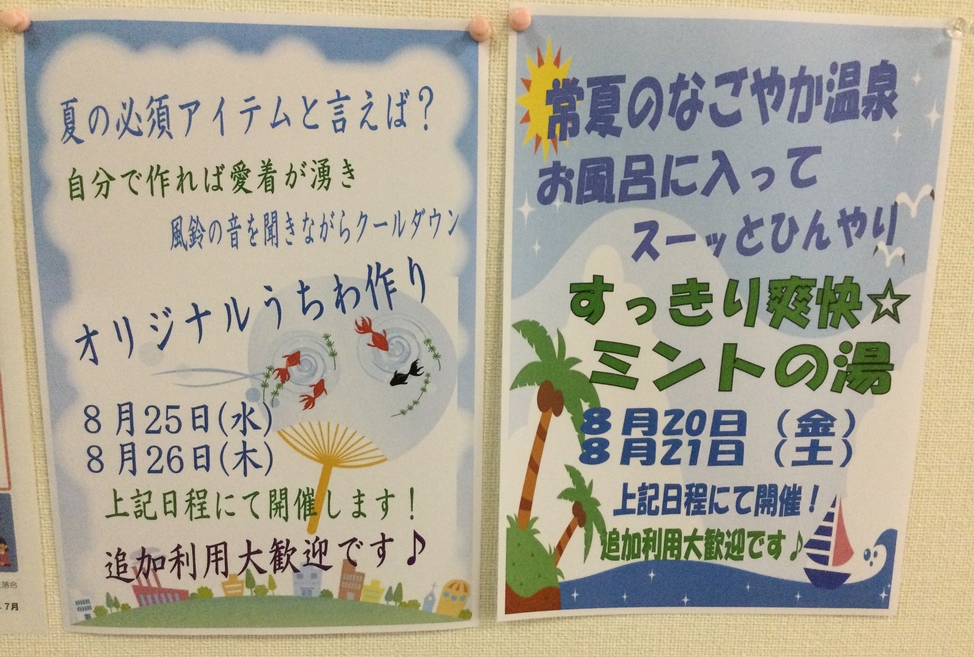 夏の必須アイテムと言えば？
自分で作れば愛着が湧き
風鈴の音を聞きながらクールダウン
オリジナルうちわ作り
８月25日(水)
８月26日(木)
上記日程にて開催します！
追加利用大歓迎です♪
常夏のなごやか温泉
お風呂に入って
スーッとひんやり
すっきり爽快☆
ミントの湯
８月20日（金）
８月21日（土）
上記日程にて開催！
追加利用大歓迎です♪
7月